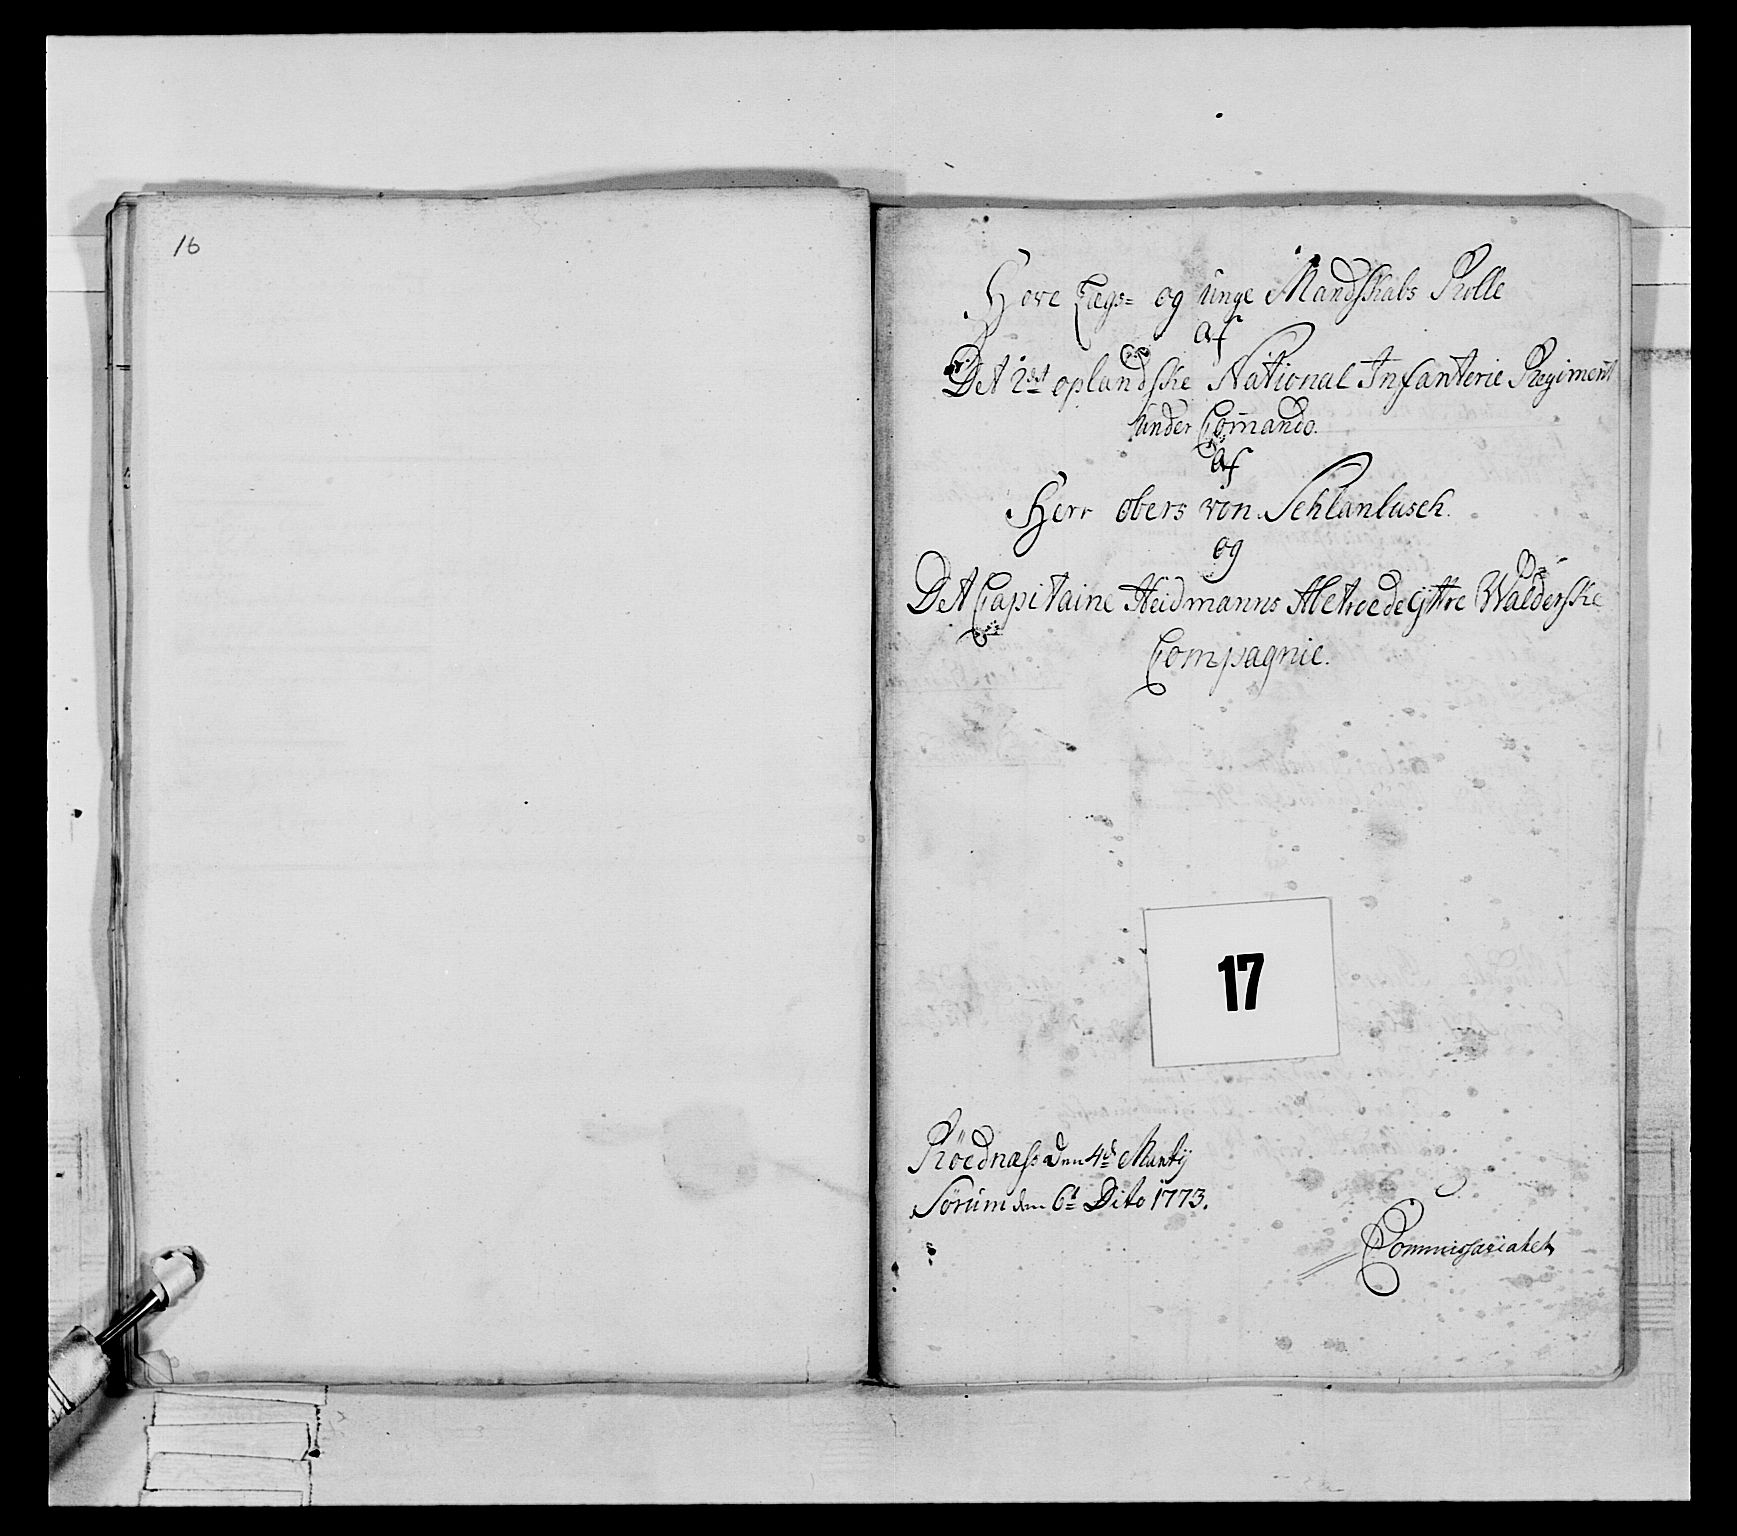 16
Hove Lægs= og Unge Mandskabs Rolle
af
Det 2det oplandske National Infanterie Regiment
Under Com̄ando.
af
Herr Obers von Schlanbusch.
og
Det Capitaine Heidmanns Aftroede Walderske
Compagnie.
17
Röednæss den 4de Martij
Sörum den 6t Dito 1773.
Commissariatet